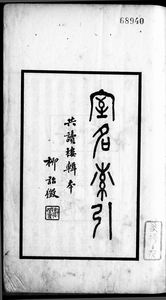 68940
室名索引
共讀樓輯本
柳詒徵